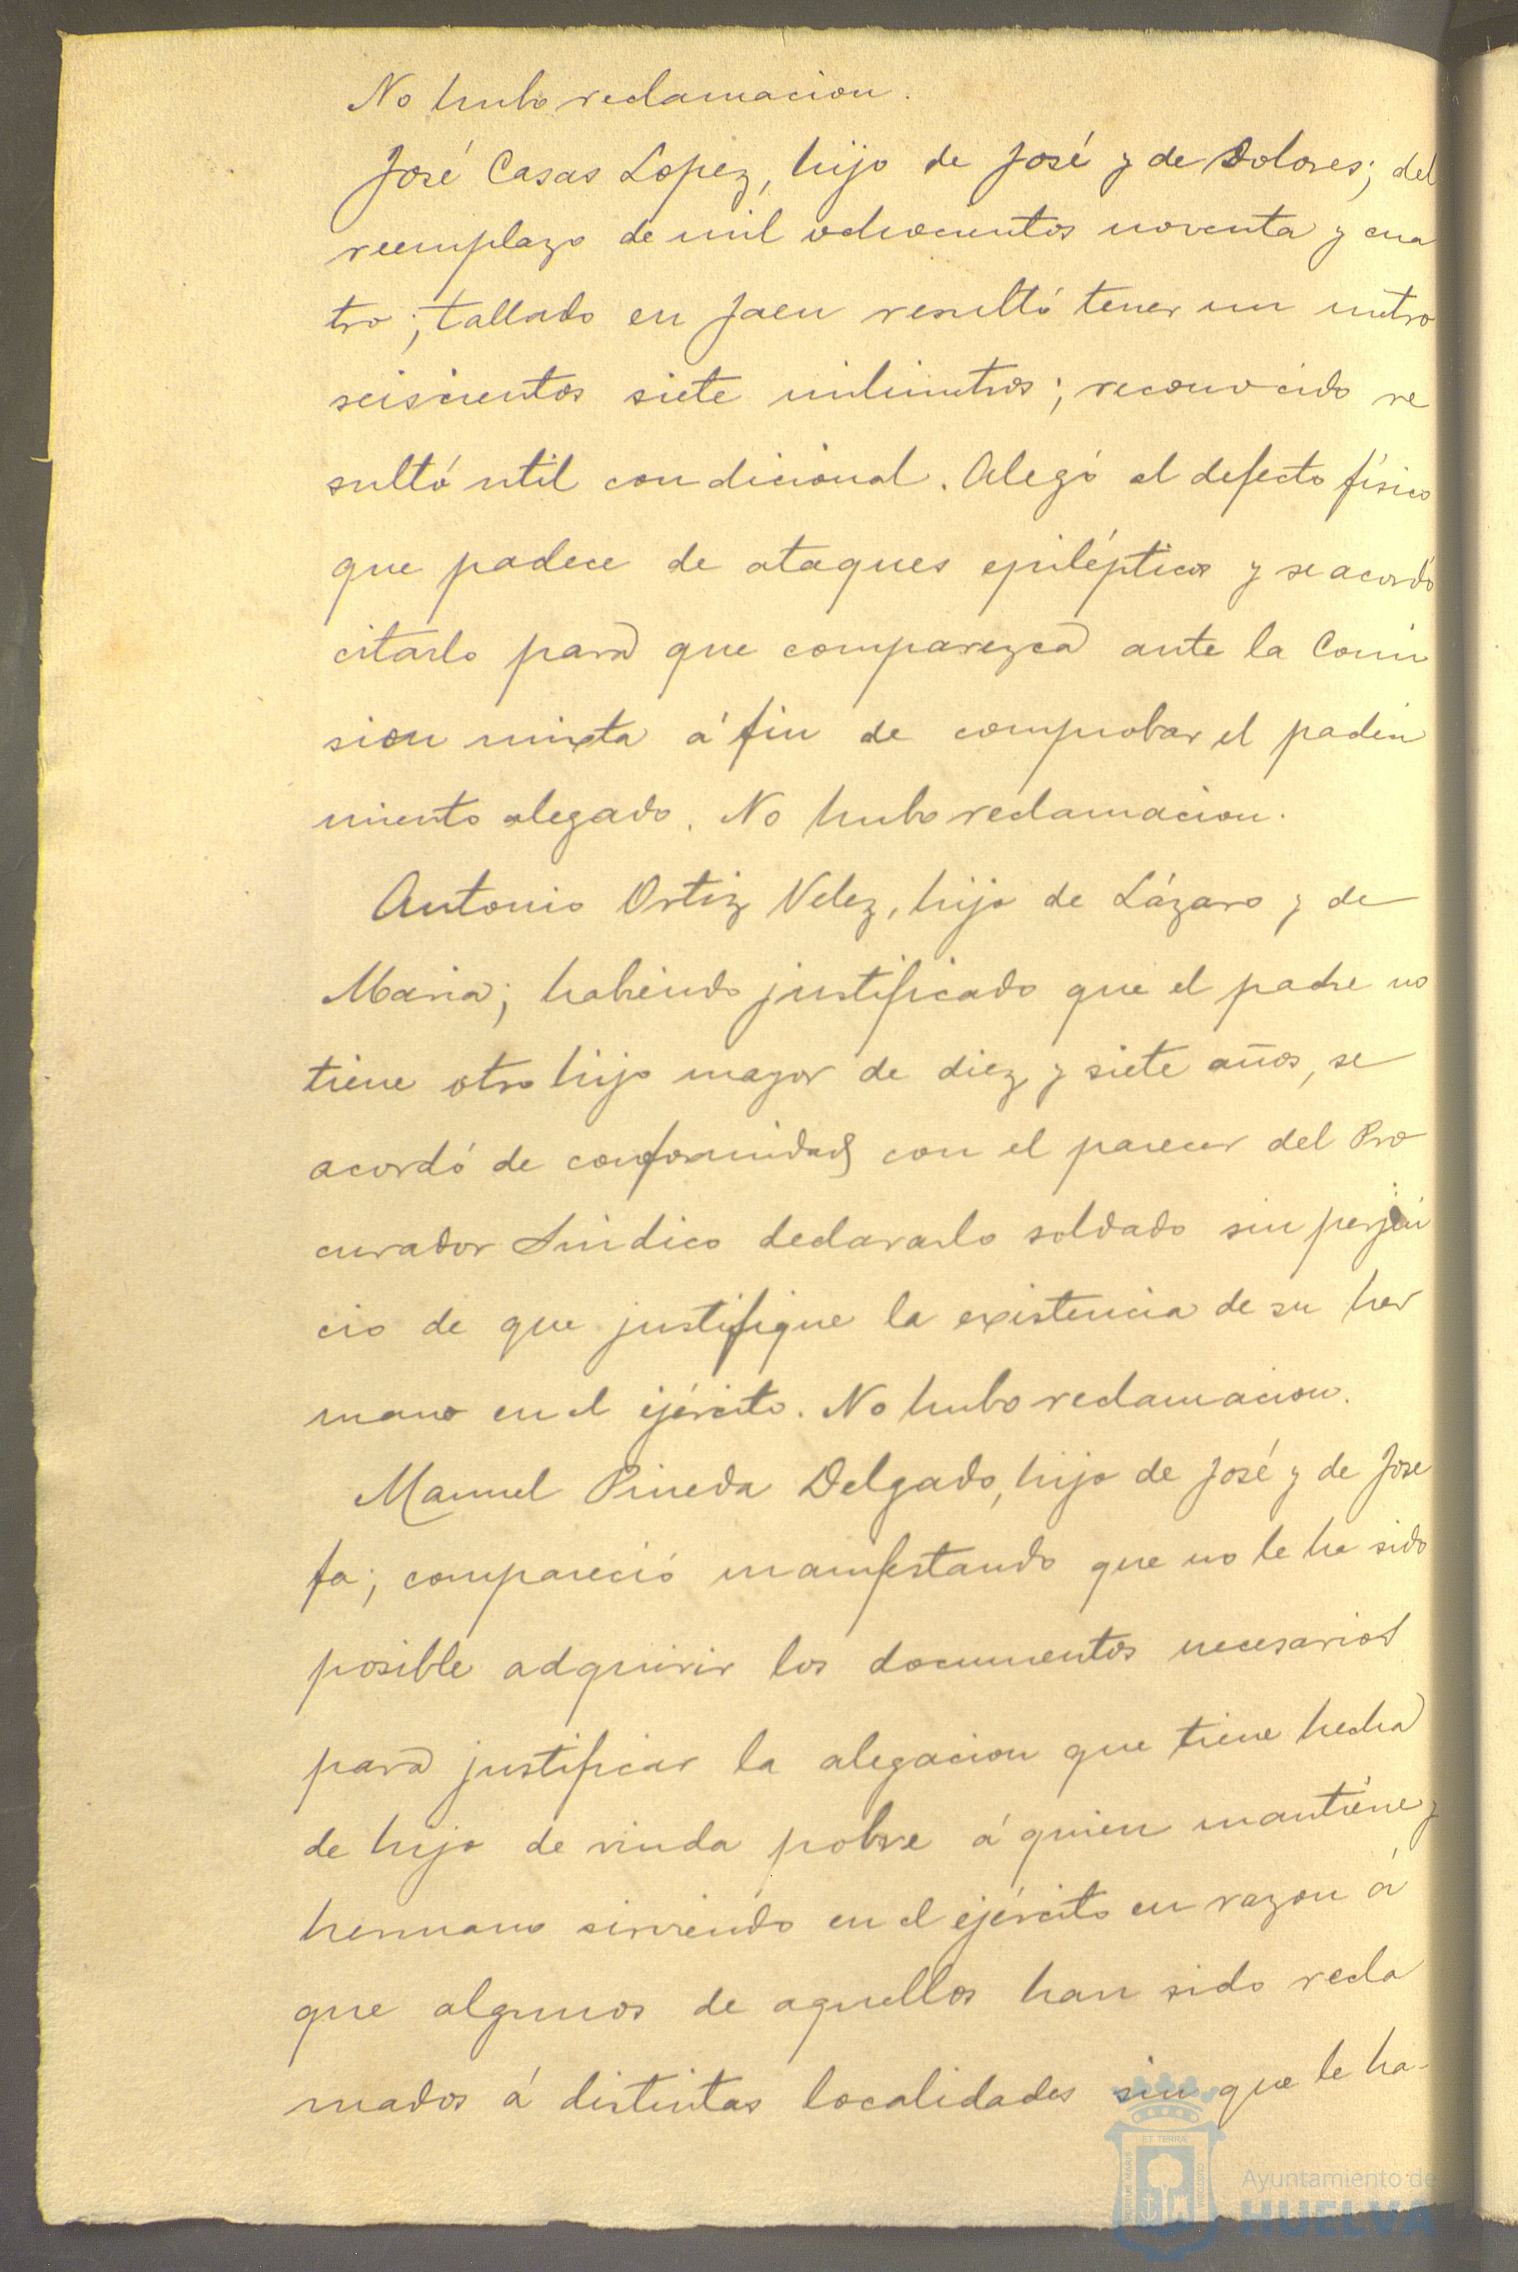 No hubo reclamacion.
José Casas Lopez, hijo de José y de Dolores; del
reemplazo de mil ochocientos noventa y cua
tro; tallado en Jaen resultó tener un metro
seiscientos siete milimetros; reconocido re
sultó util condicional. Alegó el defecto físico
que padece de ataques epilépticos y se acordó
citarlo para que comparezca ante la Comi
sion mixta á fin de comprobar el padeci
miento alegado. No hubo reclamacion.
Antonio Ortiz Velez, hijo de Lázaro y de
Maria; habiendo justificado que el padre no
tiene otro hijo mayor de diez y siete años, se
acordó de conformidad con el parecer del Pro
curador Sindico declararlo soldado sin perjui
cio de que justifique la existencia de su her
mano en el ejército. No hubo reclamacion.
Manuel Pineda Delgado, hijo de José y de Jose
fa; compareció manifestando que no le ha sido
posible adquirir los documentos necesarios
para justificar la alegacion que tiene hecha
de hijo de viuda pobre á quien mantiene y
hermano sirviendo en el ejército en razon á
que algunos de aquellos han sido recla
mados á distintas localidades sin que le ha-
ET TERRÆ
PORTUS MARIS
CUSTODIA
Ayuntamiento de
HUELVA